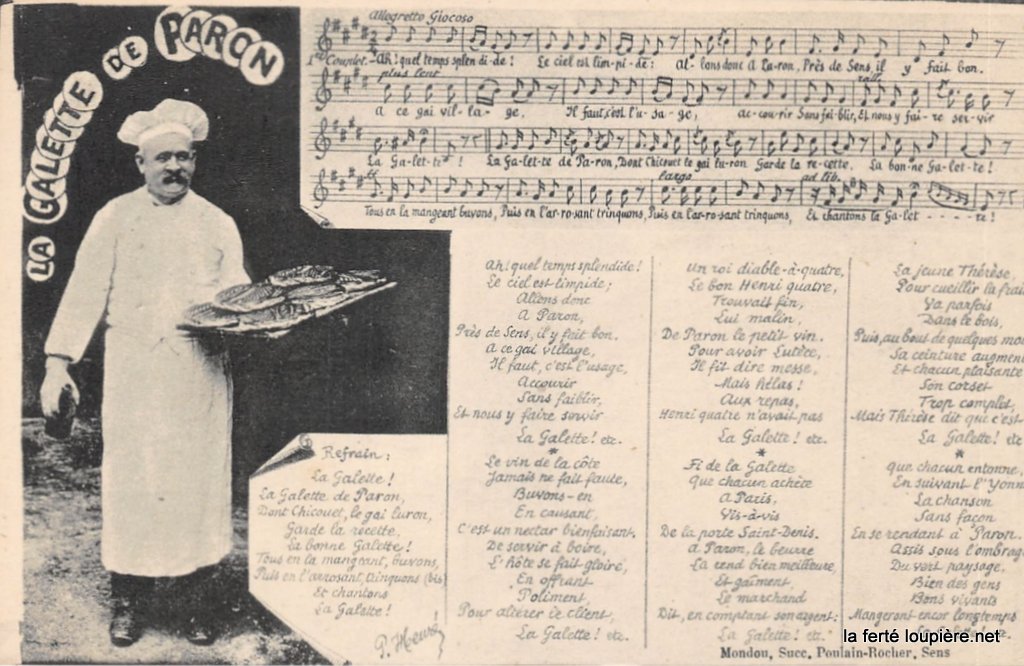 LA GALETTE DE PARON
Allegretto Giocoso
1er Couplet.- Ah! quel temps splen di-de! Le ciel est lim-pi-de: al-lons donc à Pa-ron, Près de Sens, il y fait bon.
plus lent
rall.
a ce gai vil-la-ge, Il faut, c'est l'u-sa-ge, ac-cou-rir Sans fai-blir, Et nous y fai-re ser-vir
La Ga-let-te! La Ga-let-te de Pa-ron, Dont Chicouet le gai lu-ron Garde la re-cette, La bon-ne Ga-let-te!
largo
ad lib.
Tous en la mangeant buvons, Puis en l'ar-ro-sant trinquons, Puis en l'ar-ro-sant trinquons, Et chantons la Ga-let - - - - te!
Ah! quel temps splendide!
Le ciel est limpide;
Allons donc
A Paron,
Près de Sens, il y fait bon.
A ce gai village,
Il faut, c'est l'usage,
Accourir
Sans faiblir,
Et nous y faire servir
La Galette! etc.
*
Le vin de la côte
Jamais ne fait faute,
Buvons-en
En causant,
C'est un nectar bienfaisant.
De servir à boire,
L'hôte se fait gloire,
En offrant
Poliment
Pour altérer le client,
La Galette! etc.
Un roi diable-à-quatre,
Le bon Henri quatre,
Trouvait fin,
Lui malin,
De Paron le petit vin.
Pour avoir Lutèce,
Il fit dire messe,
Mais hélas!
Aux repas,
Henri quatre n'avait pas
La Galette! etc.
*
Fi de la Galette
Que chacun achète
A Paris,
Vis-à-vis
De la porte Saint-Denis.
A Paron, le beurre
La rend bien meilleure,
Et gaîment
Le marchand
Dit, en comptant son argent:
La Galette! etc.
La jeune Thérèse,
Pour cueillir la frai
Va parfois
Dans le bois,
Puis, au bout de quelques moi
Sa ceinture augmen
Et chacun plaisante
Son corset
Trop complet,
Mais Thérèse dit que c'est
La Galette! etc
*
Que chacun entonne,
En suivant l'Yonn
La chanson
Sans façon
En se rendant à Paron.
Assis sous l'ombrag
Du vert paysage,
Bien des gens
Bons vivants
Mangeront encor longtemps
Refrain:
La Galette!
La Galette de Paron,
Dont Chicouet, le gai luron,
Garde la recette,
La bonne Galette!
Tous en la mangeant, buvons,
Puis en l'arrosant, trinquons (bis)
Et chantons
La Galette!
la ferté loupière.net
Mondou, Succ. Poulain-Rocher, Sens